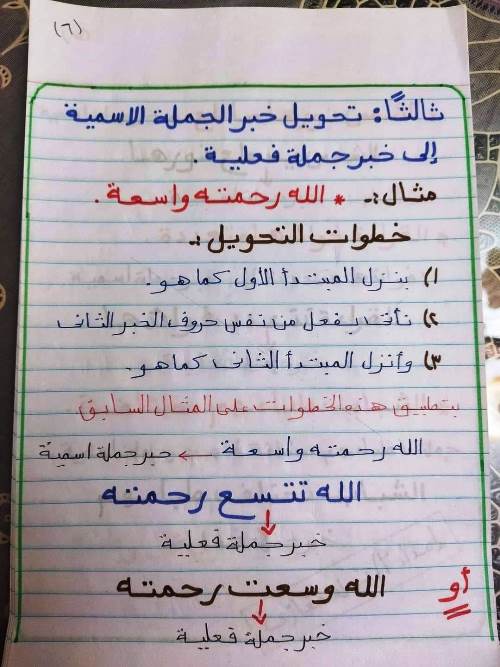 (٦)
ثالثًا: تحويل خبر الجملة الاسمية
إلى خبر جملة فعلية.
مثال :ـ * الله رحمته واسعة.
خطوات التحويل :ـ
١) بنزل المبتدأ الأول كما هو.
٢) نأتى بفعل من نفس حروف الخبر الثانى
٣) وأنزل المبتدأ الثانى كما هو.
بتطبيق هذه الخطوات على المثال السابق
الله رحمته واسعة ← خبر جملة اسمية
الله تتسع رحمته
خبر جملة فعلية
أو الله وسعت رحمته
خبر جملة فعلية